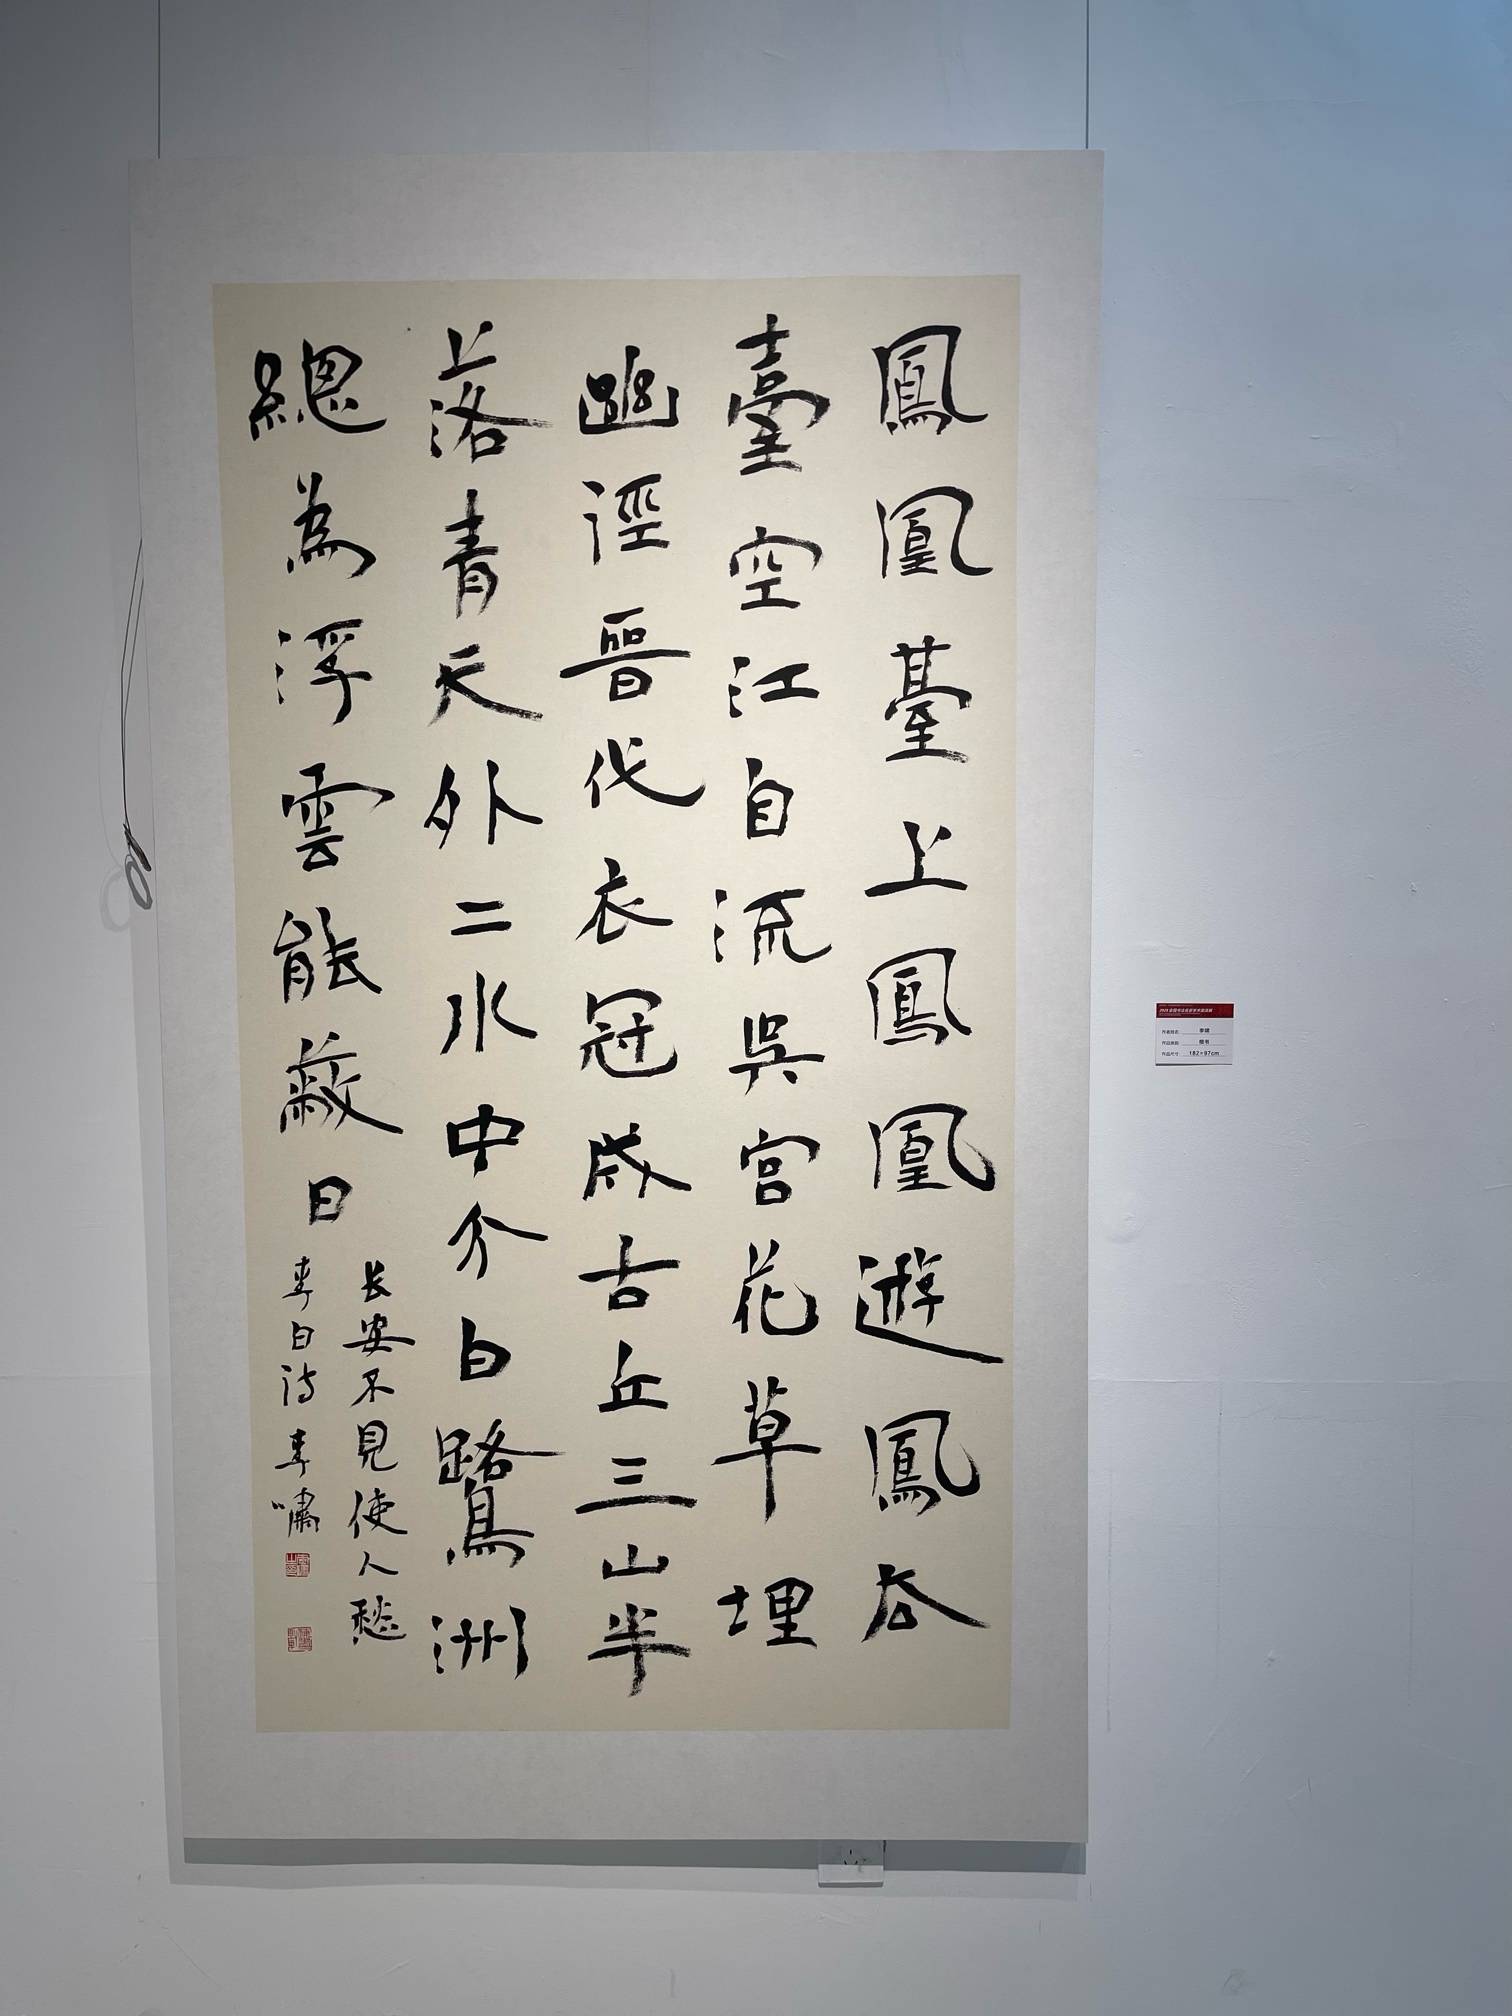 鳳凰臺上鳳凰遊鳳去
臺空江自流吳宮花草埋
幽徑晉代衣冠成古丘三山半
落青天外二水中分白鷺洲
總為浮雲能蔽日
长安不見使人愁
李白诗李嘯
作者姓名: 李啸
作品类别: 楷书
作品尺寸: 182×97cm